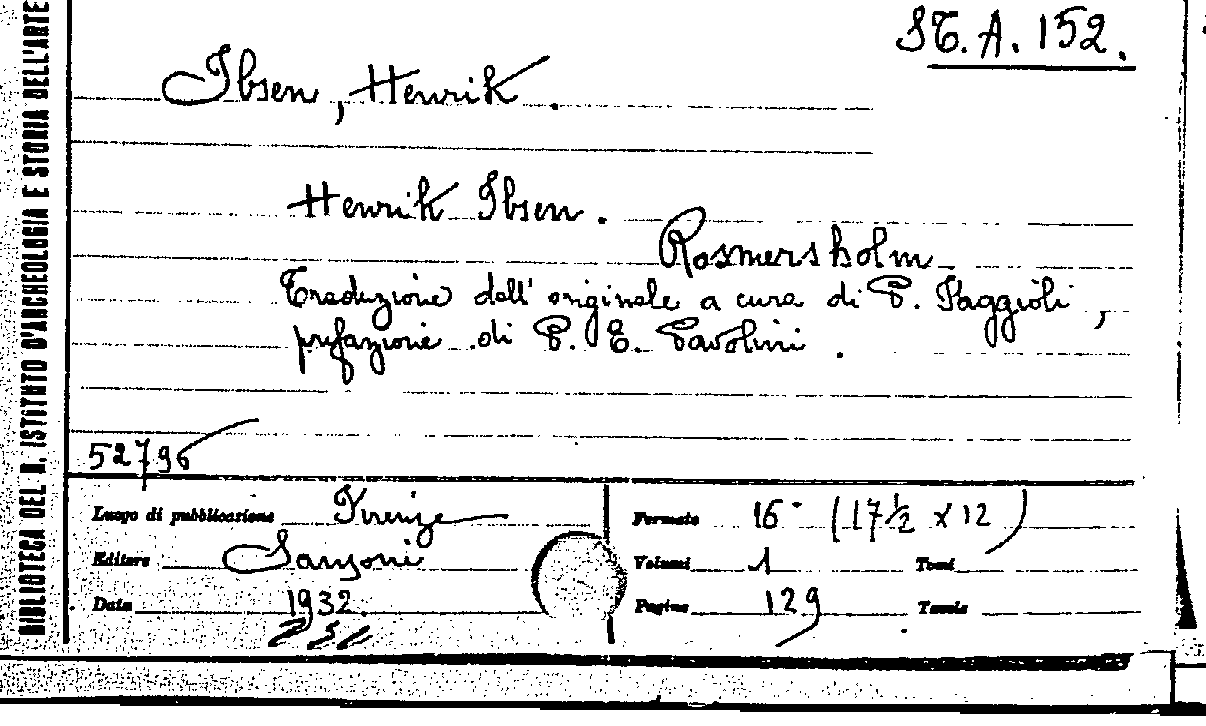 BIBLIOTECA DEL R. ISTITUTO D'ARCHEOLOGIA E STORIA DELL'ARTE
ST. A. 152.
Ibsen, Henrik.
Henrik Ibsen.
Rosmersholm
Traduzione dell' originale a cura di P. Faggioli,
prefazione di P. E. Pavolini.
52796
Luogo di pubblicazione Firenze
Editore Sansoni
Data 1932.
Formato 16° (17½ x 12)
Volumi 1 Tomi
Pagine 129 Tavole